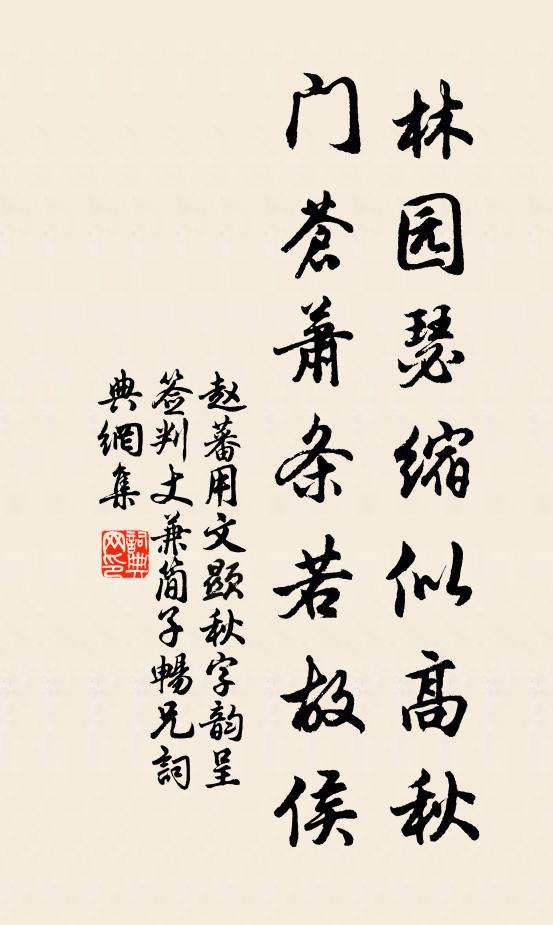 林园瑟缩似高秋
门苍萧条若故侯
赵蕃用文顯秋字韵呈
签判丈兼简子畅兄詞
典網集
詞典网印